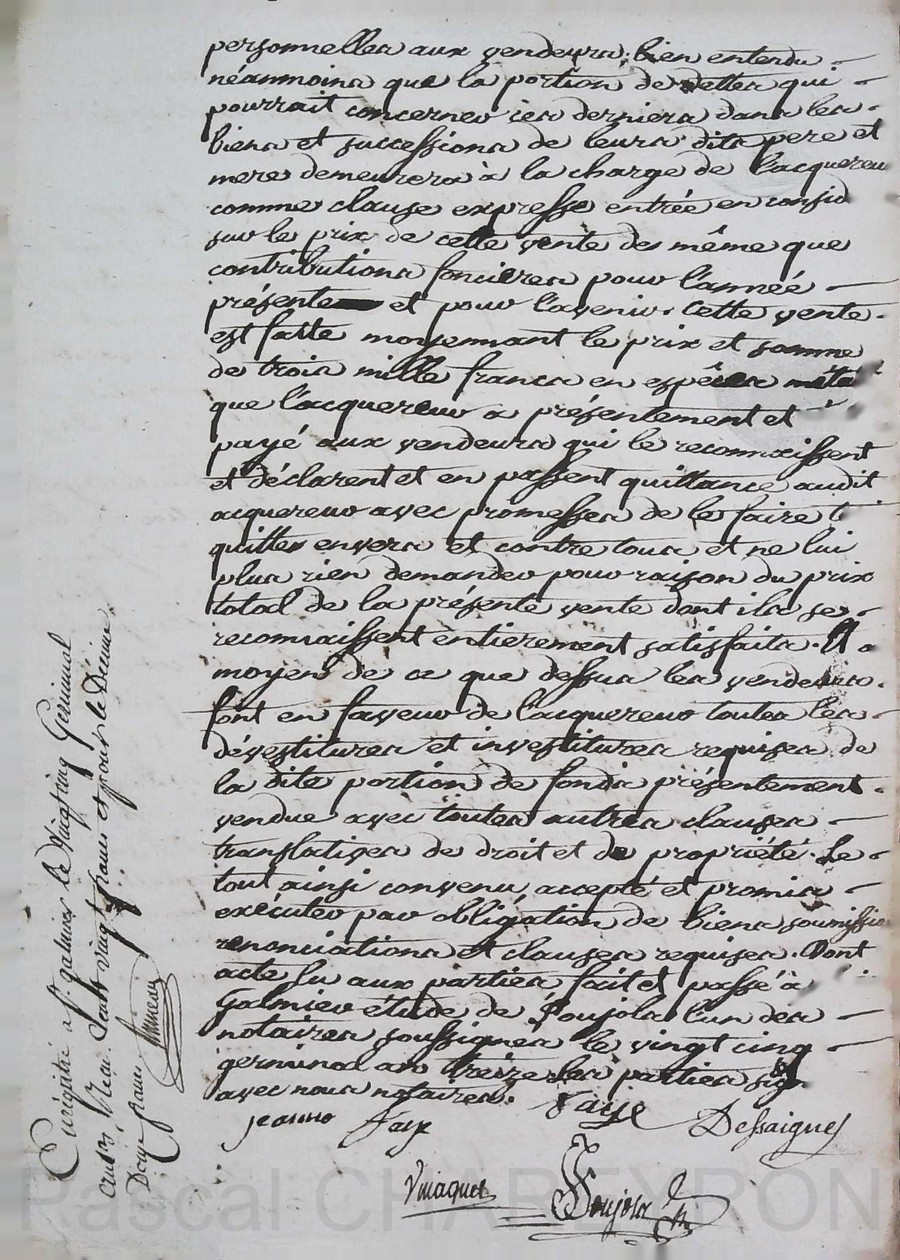 personnelles aux vendeurs; bien entendu
néanmoins que la portion de dettes qui
pourrait concerner ces derniers dans les
biens et successions de leurs dits pere et
mere demeurera à la charge de l'acquereu
comme clause expresse entrée en consid
sur le prix de cette vente de même que
contributions foncieres pour l'année
présente et pour l'avenir. Cette vente
est faite moyennant le prix et somme
de trois mille francs en espèces méta
que l'acquereur a présentement et
payé aux vendeurs qui le reconnaissent
et déclarent et en passent quittance audit
acquereur avec promesses de le faire t
quitter envers et contre tous et ne lui
plus rien demander pour raison du prix
total de la présente vente dont ils se
reconnaissent entierement satisfaits. Au
moyen de ce que dessus les vendeurs
font en faveur de l'acquereur toutes les
dévestitures et investitures requises de
la dite portion de fonds présentement
vendue avec toutes autres clauses
translatives de droit et de propriété. Le
tout ainsi convenu, accepté et promis
exécuter par obligation de biens soumissio
renonciations et clauses requises. Dont
acte lu aux parties fait et passé à
Galmier étude de Poujola l'un des
notaires soussignés le vingt cinq
germinal an treize Les parties sign
avec nous notaires.
jeanno Faije Faije Dessaignes
Poujola
Enregistré à St galmier le Vingt cinq Germinal
Reçu Cent vingt francs et pour le Décime
Douze francs
Pascal CHAREYRON